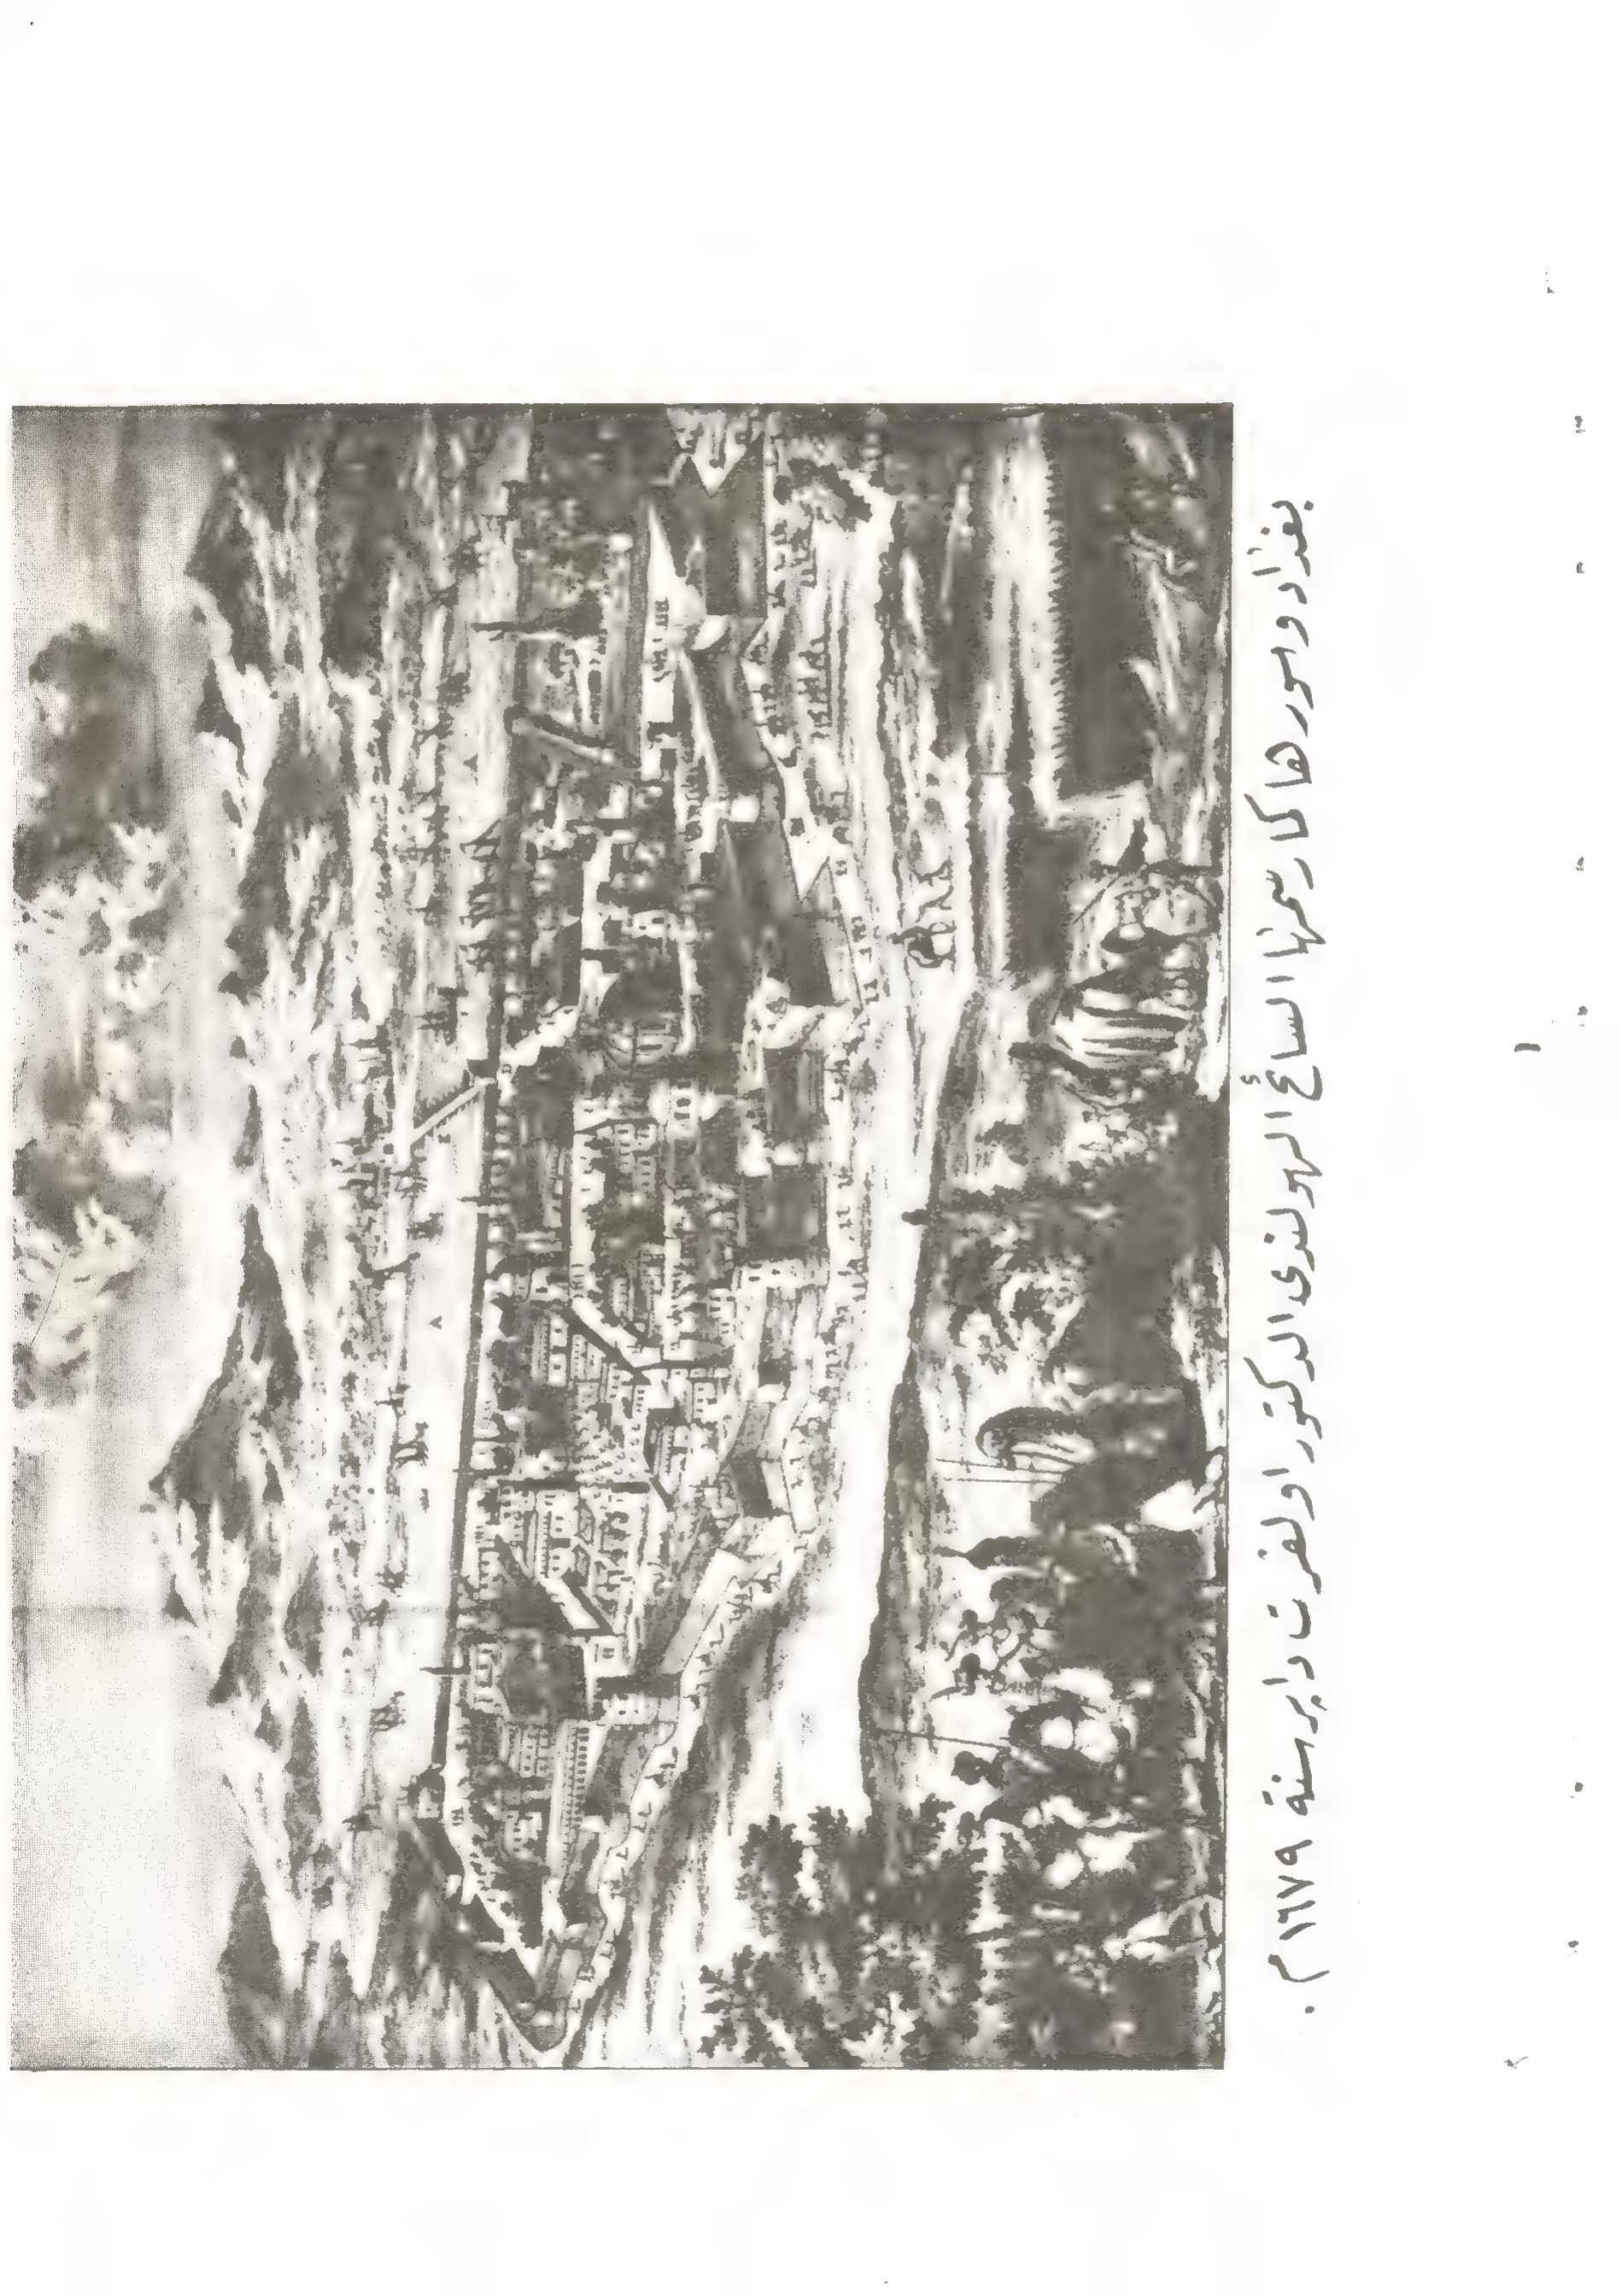 بغداد وسورها كما رسمها السائح الهولندي الدكتور اولفرت دابر سنة ١٦٧٩م.